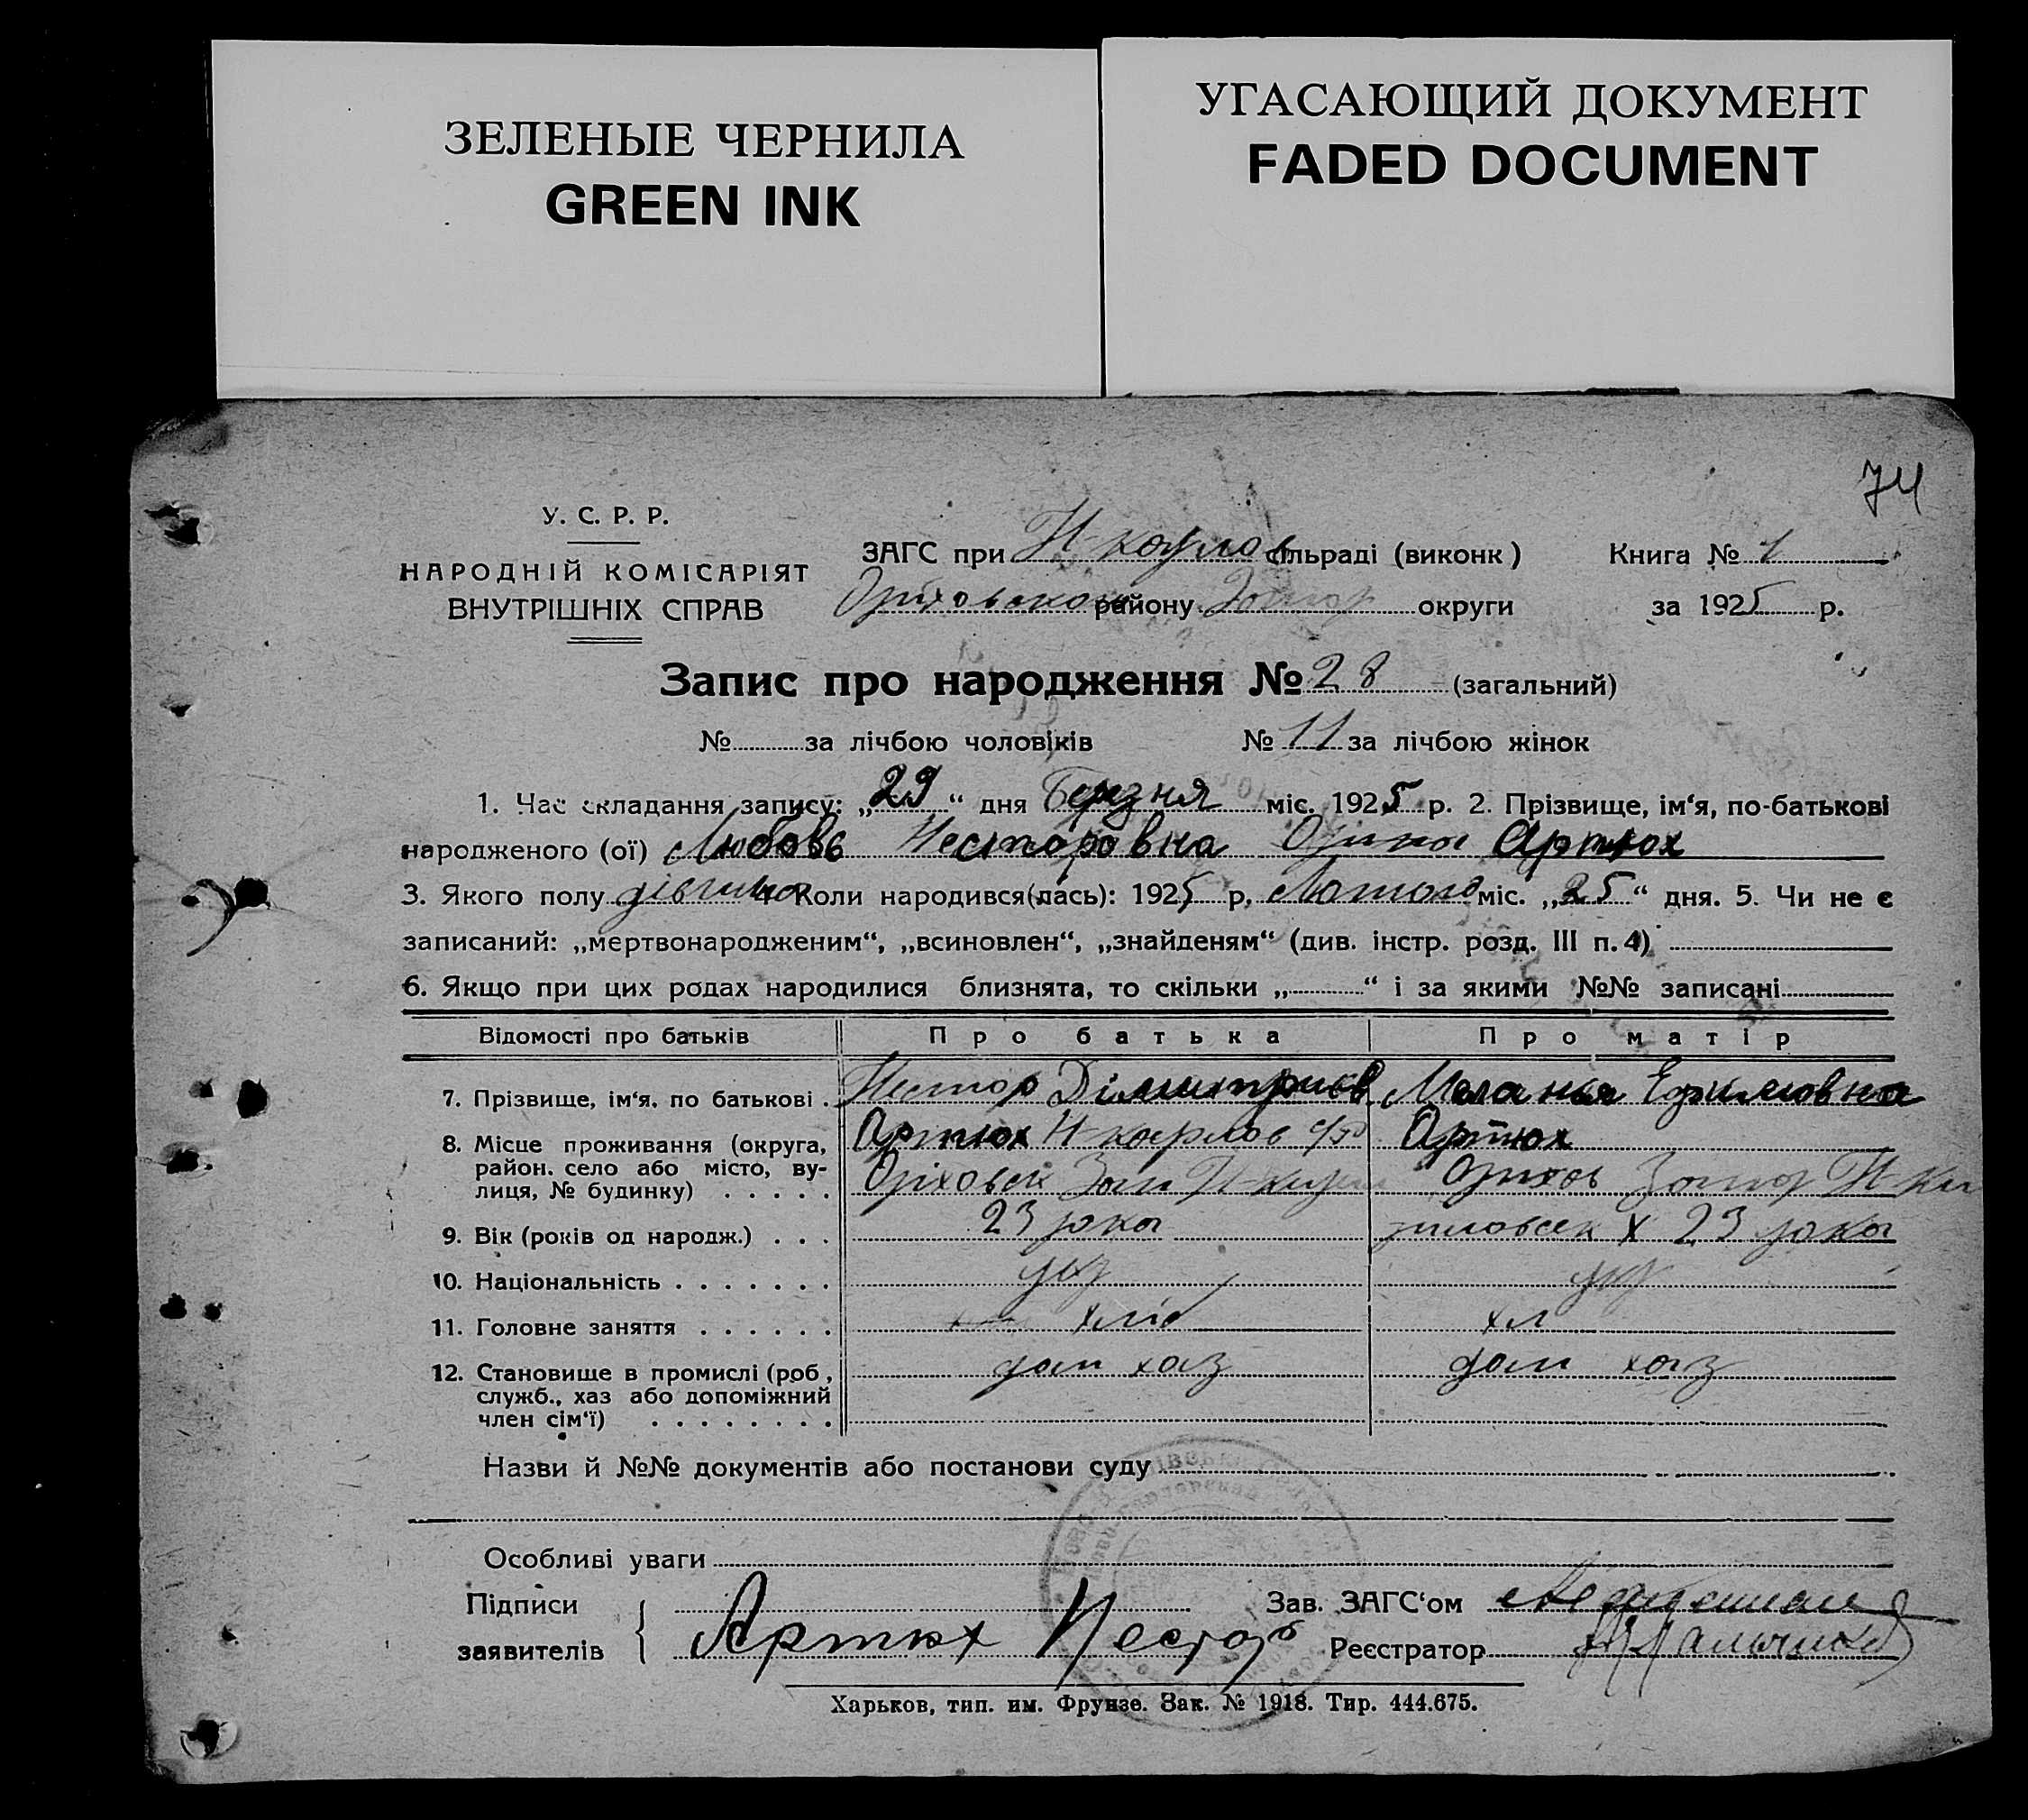 ЗЕЛЕНЫЕ ЧЕРНИЛА
GREEN INK
УГАСАЮЩИЙ ДОКУМЕНТ
FADED DOCUMENT
74
У. С. Р. Р.
НАРОДНІЙ КОМІСАРІЯТ
ВНУТРІШНІХ СПРАВ
ЗАГС при Н-карлов сільраді (виконк) Книга № 1
Оріховського району Запор округи за 1925 р.
Запис про народження № 28 (загальний)
№ за лічбою чоловіків № 11 за лічбою жінок
1. Час складання запису: „29“ дня Березня міс. 1925 р. 2. Прізвище, ім‘я, по-батькові
народженого (ої) Любовь Несторовна Артюх
3. Якого полу дівчина 4. Коли народився(лась): 1925 р. Лютого міс. „25“ дня. 5. Чи не є
записаний: „мертвонародженим“, „всиновлен“, „знайденям“ (див. інстр. розд. III п. 4)
6. Якщо при цих родах народилися близнята, то скільки „ “ і за якими №№ записані
Відомості про батьків Про батька Про матір
7. Прізвище, ім‘я, по батькові . Нестор Дімитриєв Меланья Ефимовна
8. Місце проживання (округа, Артюх Н-карлов с/р Артюх
район. село або місто, ву-
лиця, № будинку) . . . . . Оріховск Зап Оріхов Запор
9. Вік (років од народж.) . . . 23 роки х 23 роки
10. Національність . . . . . . . укр укр
11. Головне заняття . . . . . . хліб хл
12. Становище в промислі (роб, доп хаз доп хаз
служб., хаз або допоміжний
член сім‘ї) . . . . . . . .
Назви й №№ документів або постанови суду
Особливі уваги
Підписи Зав. ЗАГС‘ом
заявителів Артюх Нестор Реєстратор
Харьков, тип. им. Фрунзе. Зак. № 1918. Тир. 444.675.